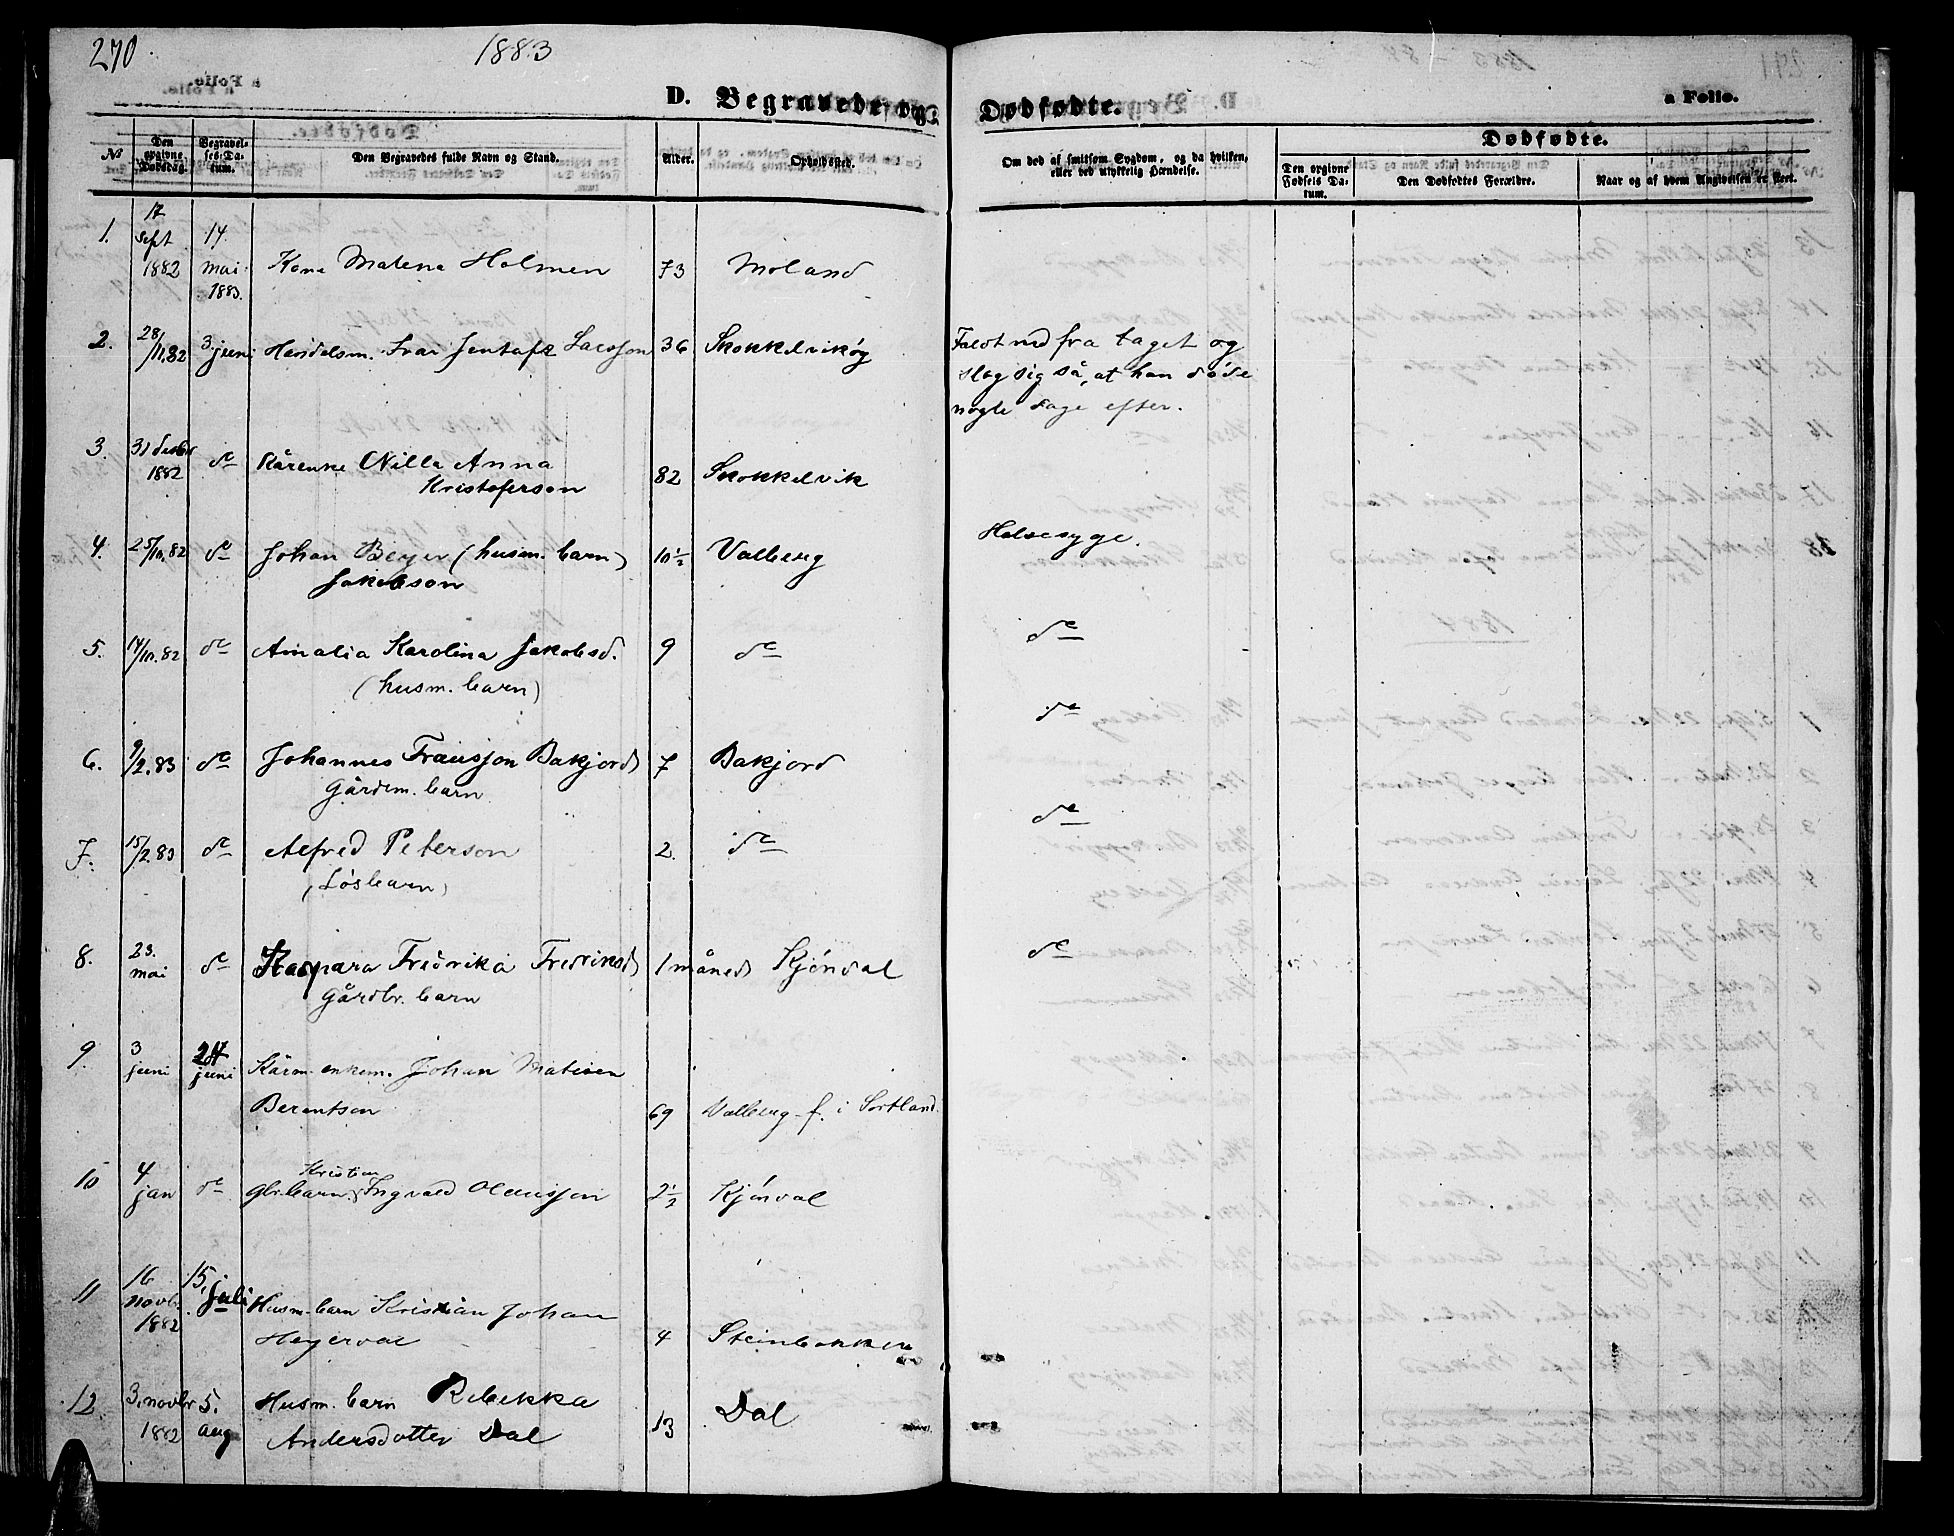 270
1883
a Folio.
D. Begravede og Dødfødte.
a Folio.
№
Den opgivne Dødsdag.
Begravelses-Datum.
Den Begravedes fulde Navn og Stand.
Alder.
Opholdssted.
Om død af smitsom Sygdom, og da hvilken, eller ved ulykkelig Hændelse.
Dødfødte.
Den opgivne Fødsels Datum.
Den Dødfødtes Forældre.
Naar og af hvem Angivelsen er skeet.
1. 17 sept 1882 14. mai 1883. Kone Malena Holmen 73 Moland
2. 28/11.82 3. juni Handelsm. Ivar Larsson 36 Skokkelvikøy
Faldt ned fra taget og
slog sig så, at han døde
nogle dage efter.
3. 31 desbr 1882 do Kårenke Nilla Anna
Kristoferson 82 Skokkelvik
4. 25/10.82 do Johan Beyer (husm. barn)
Jakobson 10 1/2 Valberg Halsesyge.
5. 14/10.82 do Amalia Karolina Jakobsd.
(husm. barn) 9 do do
6. 9/2.83 do Johannes Fransson Bakjord
Gårdm. barn 7 Bakjord do
7. 15/2.83 do Alfred Peterson
(Løsbarn) 2. do do
8. 23. mai do Kaspara Fredrika Fredriksd
gårdbr. barn 1 måned Kjøndal do
9. 3 juni 24 juni Kårm. enkem. Johan Matisen
Berentsen 69 Valberg f. i Sortland.
10 4 jan do glr. barn Kristian Ingvald Olausson 2 1/2 Kjøndal
11 16 novbr. 1882 15. juli Husm. barn Kristian Johan
4 Steinbakken
12. 3. novbr 1882 5. aug Husm. barn Rebekka
Andersdotter Dal 13 Dal